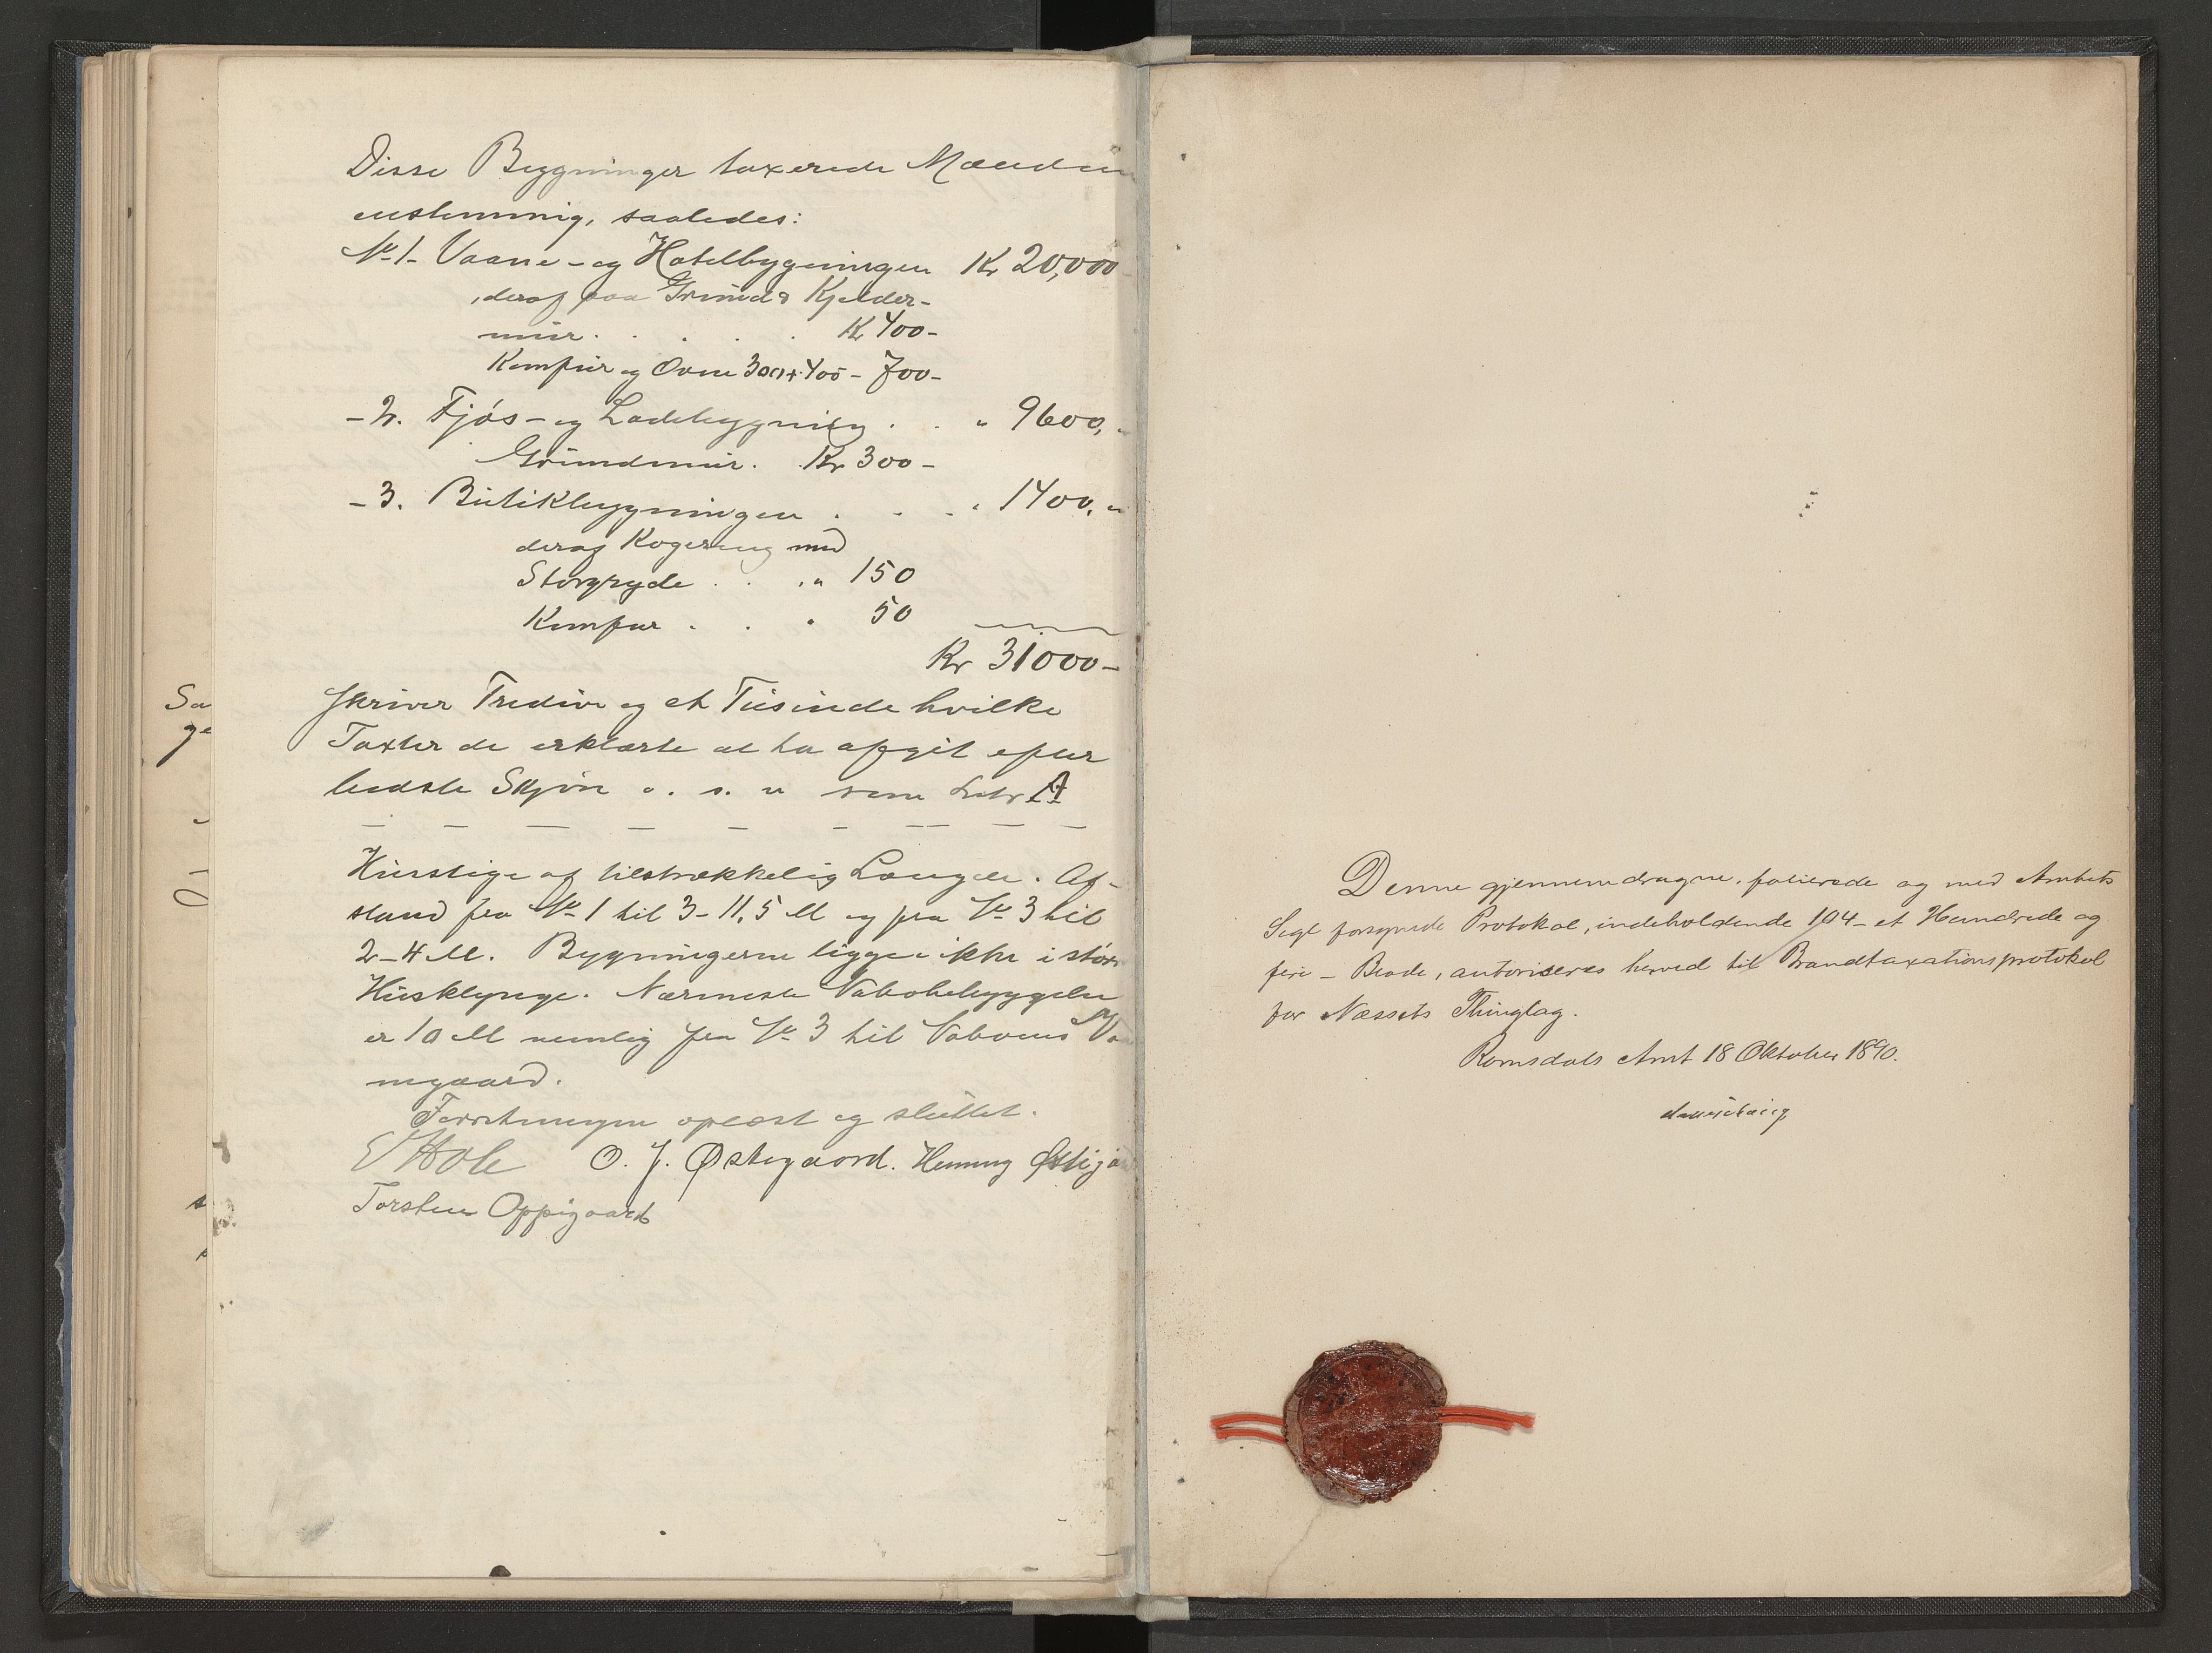 Disse Bygninger taxerede Mændene
enstemmig, saaledes:
No 1 - Vaane - og Hotelbygningen Kr 20,000
, deraf paa Grund & Kjelder-
mur . . . . Kr 400 -
Komfur og Ovne 300 + 400 - 700 -
- 2. Fjøs - og Ladebygning . . " 9600, -
Grundmur. Kr 300 -
- 3. Butikbygningen . . . " 1400, "
deraf Kogering med
Storgryde . . . " 150
Komfur . . " 50
Kr 31000 -
skriver Tredive og et Tusinde hvilke
Taxter de erklærte at ha afgit efter
bedste Skjøn o. s. v som Litr A
Husstige af tilstrækkelig Længde. Af-
stand fra No 1 til 3 - 11,5 M og fra No 3 til
2 - 4 M. Bygningerne ligger ikke i større
Husklynge. Nærmeste Nabobebyggelse
er 10 M nemlig fra No 3 til Naboens
Forretningen oplæst og sluttet.
E Hole O. J. Østigaard. Heming Østigaard
Torstein Oppigaard
Sa
ge
Denne gjennemdragne, folierede og med Amtets
Segl forsynede Protokol, indeholdende 104 - et Hundrede og
fire - Blade, autoriseres herved til Brandtaxationsprotokol
for Næssets Thinglag.
Romsdals Amt 18 Oktober 1890.